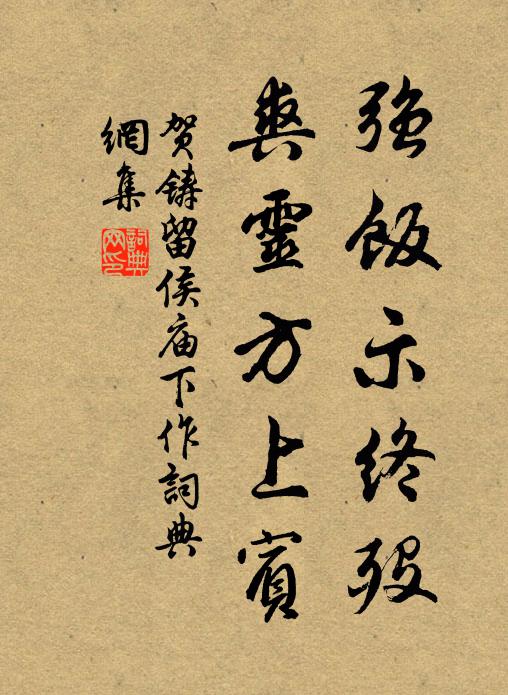 強飯示終歿
爽靈方上賓
贺鑄留侯庙下作詞典
網集
詞典
网印